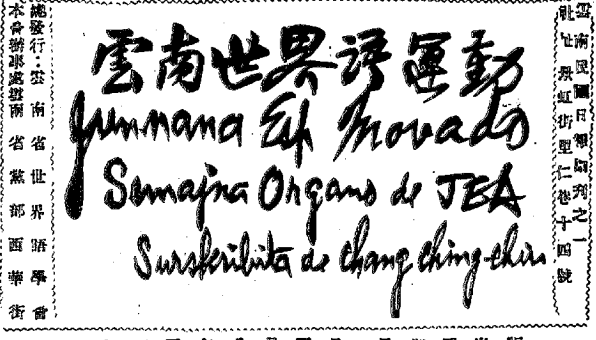 雲南民國日報副刊之一
社址 染虹街里仁巷十四號
雲南世界語運動
Junnana Esp Movado
Semajna Organo de JEA
Surskribita de Chang Ching-chiu
總發行：雲南省世界語學會
本會辦事處雲南省黨部西華街